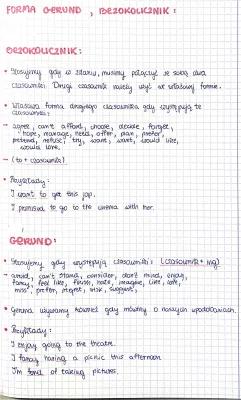 FORMA GERUND, BEZOKOLICZNIK:
BEZOKOLICZNIK:
• Stosujemy gdy w zdaniu, musimy połączyć ze sobą dwa
czasowniki. Drugi czasownik należy użyć w właściwej formie.
• Właściwa forma drugiego czasownika gdy występują te
czasowniki:
- agree, can't afford, choose, decide, forget,
hope, manage, need, offer, plan, prefer,
pretend, refuse, try, want, want, would like,
would love.
- (to + czasownik)
• Przykłady:
I want to get this job.
I promised to go to the cinema with her.
GERUND:
• Stosujemy gdy występują czasowniki: (czasownik + ing)
- avoid, can't stand, consider, don't mind, enjoy,
fancy, feel like, finish, hate, imagine, like, love,
miss, prefer, regret, risk, suggest,
• Gerund używamy również gdy mówimy o naszych upodobaniach.
• Przykłady:
I enjoy going to the theatre.
I fancy having a picnic this afternoon
I'm fond of taking pictures.